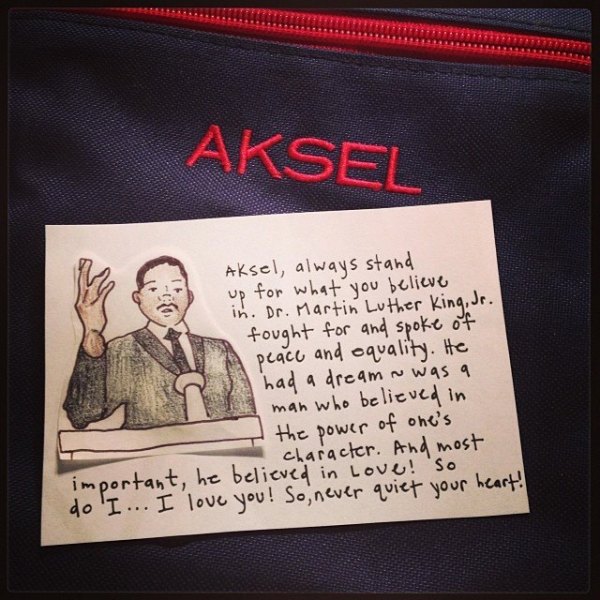 AKSEL
Aksel, always stand
up for what you believe
in. Dr. Martin Luther King, Jr.
fought for and spoke of
peace and equality. He
had a dream ~ was a
man who believed in
the power of one's
character. And most
important, he believed in Love! So
do I... I love you! So, never quiet your heart!